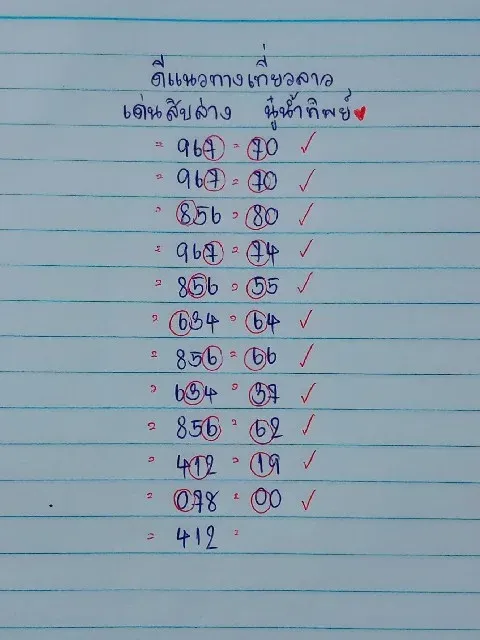 ดีแนวทางเที่ยวลาว
เด่นสิบล่าง ปู่น้ำทิพย์
= 967 = 70 ✓
= 967 = 70 ✓
= 856 = 80 ✓
= 967 = 74 ✓
= 856 = 55 ✓
= 634 = 64 ✓
= 856 = 66 ✓
= 634 = 37 ✓
= 856 = 62 ✓
= 412 = 19 ✓
= 078 = 00 ✓
= 412 =